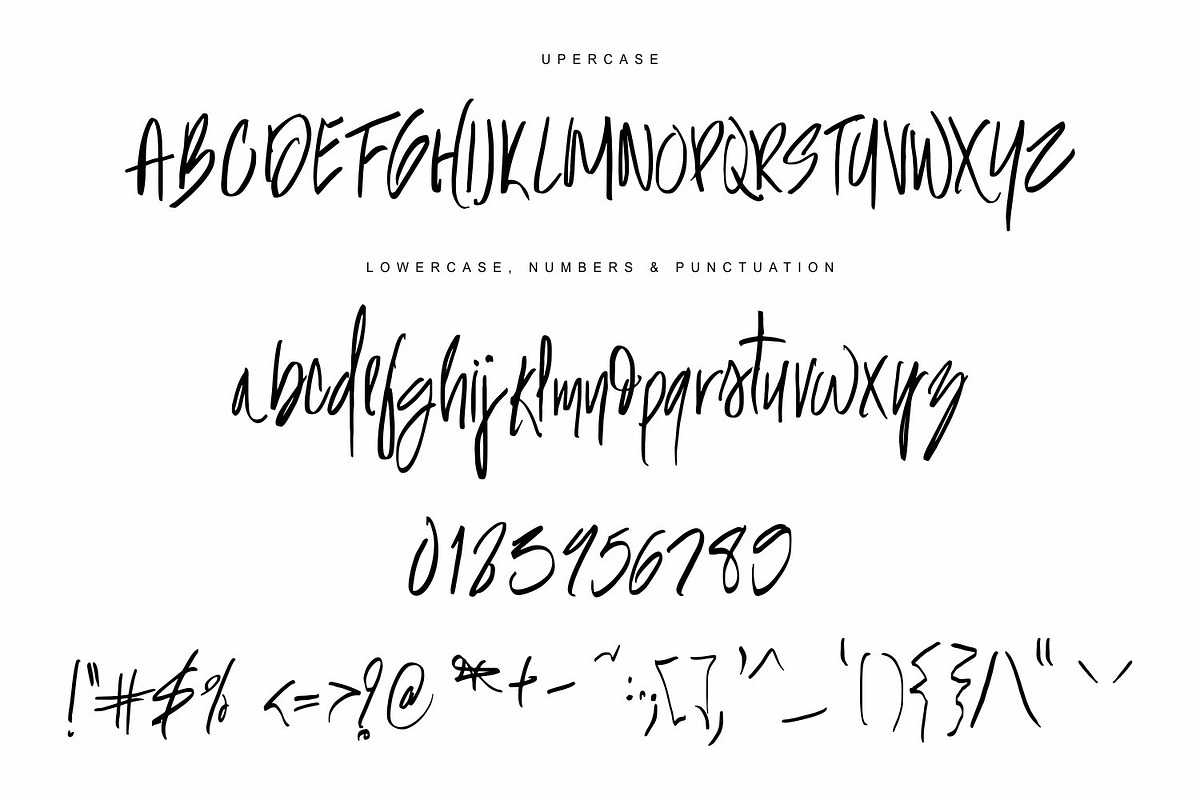 UPERCASE
ABCDEFGHIJKLMNOPQRSTUVWXYZ
LOWERCASE, NUMBERS & PUNCTUATION
abcdefghijklmnopqrstuvwxyz
0123456789
!"#$% <=>?@ *+-~:;[],'^_'(){}/\" \ /